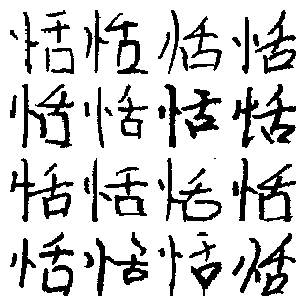 恬恬恬恬
恬恬恬恬
恬恬恬恬
恬恬恬恬